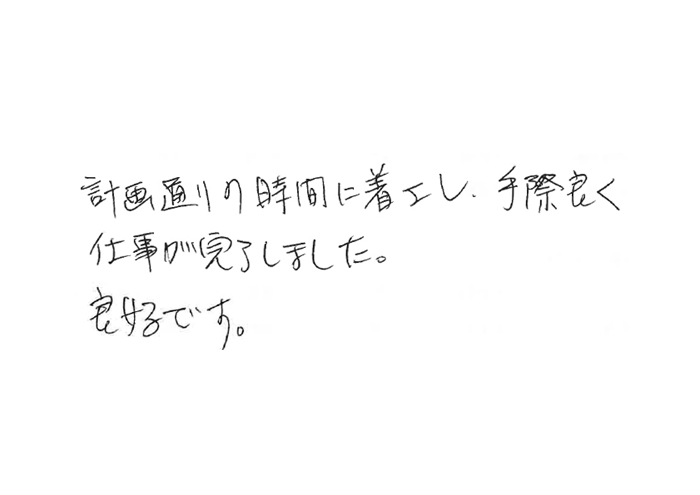 計画通りの時間に着工し、手際良く
仕事が完了しました。
良好です。